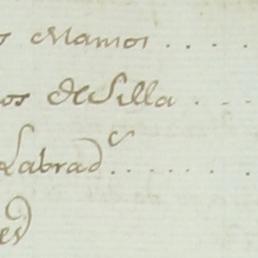 s Mamos . . . .
os de Silla . . .
Labrad.ˢ . . . . . .
es